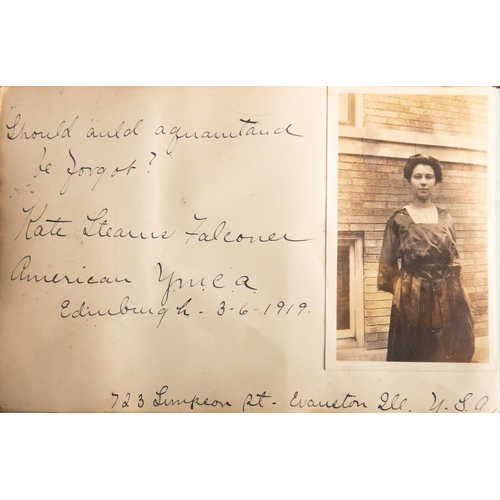 "Should auld aquaintand
be forgot?"
Kate Stearns Falconer
American Y.M.C.A.
Edinburgh - 3-6-1919.
723 Simpson St. Evanston Ill. U.S.A.